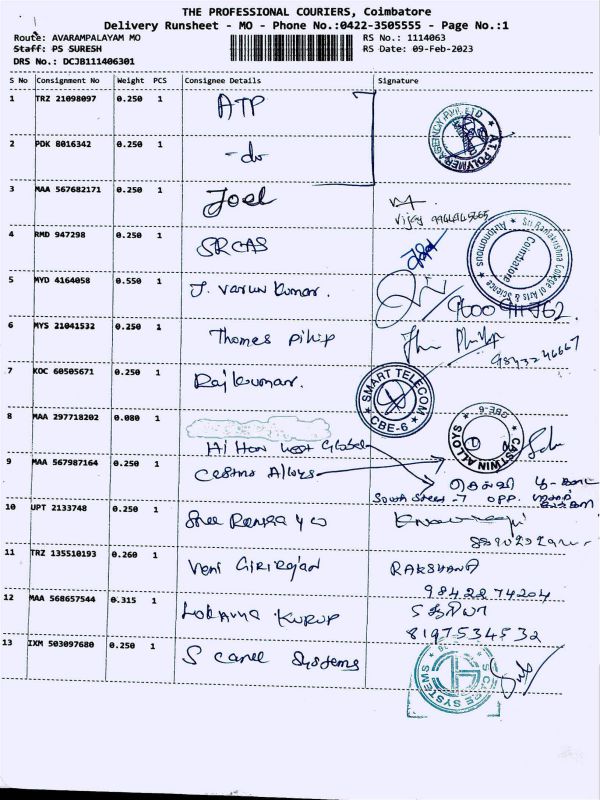 THE PROFESSIONAL COURIERS, Coimbatore
Delivery Runsheet - MO - Phone No.:0422-3505555 - Page No.:1
Route: AVARAMPALAYAM MO RS No.: 1114063
Staff: PS SURESH RS Date: 09-Feb-2023
DRS No.: DCJB111406301
S No Consignment No Weight PCS Consignee Details Signature
1 TRZ 21098097 0.250 1 ATP
A.T. POLYMER AGENCY PVT LTD
2 PDK 8016342 0.250 1 -do
3 MAA 567682171 0.250 1 Joel
Vijay
4 RMD 947298 0.250 1 SRCAS
Sri Ramakrishna College of Arts & Science Autonomous Coimbatore
5 MYD 4164058 0.550 1 J. Varun Kumar.
6 MYS 21041532 0.250 1 Thomes Pilip
9843246667
7 KOC 60505671 0.250 1 Rajkumar.
SMART TELECOM CBE-6
8 MAA 297718202 0.080 1
Global
CASTWIN ALLOYS CBE-6
9 MAA 567987164 0.250 1 Alloys
South Street -7 OPP.
10 UPT 2133748 0.250 1 Shee
11 TRZ 135510193 0.260 1 Veni Girirajan RAKSHANA
9842274204
12 MAA 568657544 0.315 1 KURUP
8197534532
13 IXM 503097680 0.250 1 S Canee Systems
SYSTEMS